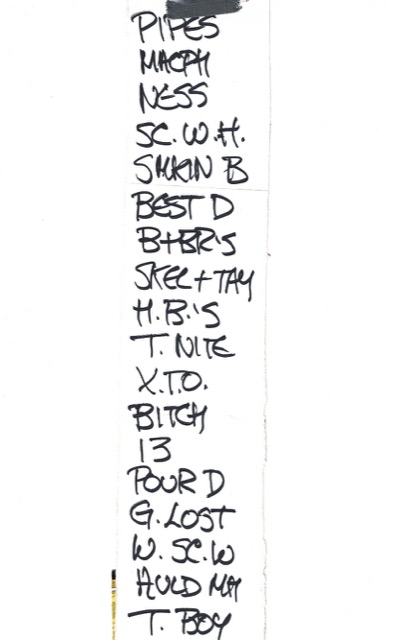 PIPES
MACPH
NESS
SC.W.H.
SMKIN B
BEST D
B+BR'S
SKEL+TAY
H.B.'S
T. NITE
X.T.O.
BITCH
13
POUR D
G.LOST
W. SC.W
AULD MA
T. BOY